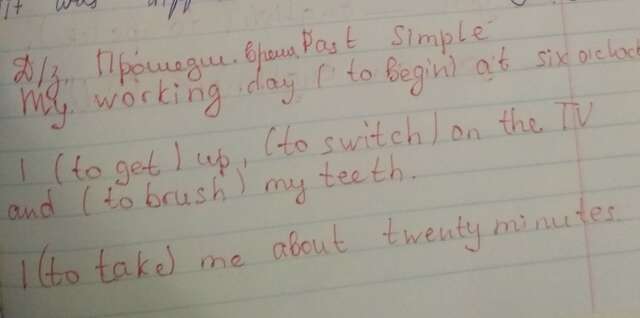 it was
Д/з. Прошедш. время Past Simple
My working day (to begin) at six oclock
I (to get) up, (to switch) on the TV
and (to brush) my teeth.
I (to take) me about twenty minutes.